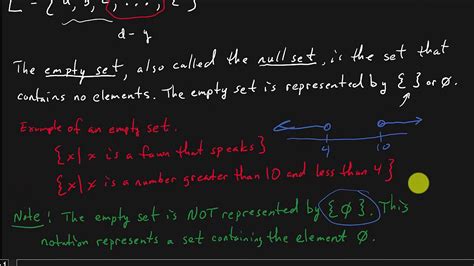 L = {a, b, c, ..., z}
d - y
The empty set, also called the null set, is the set that
contains no elements. The empty set is represented by { } or ∅.
Example of an empty set.
{x | x is a fawn that speaks}
4 10
{x | x is a number greater than 10 and less than 4}
Note! The empty set is NOT represented by {∅}. This
notation represents a set containing the element ∅.